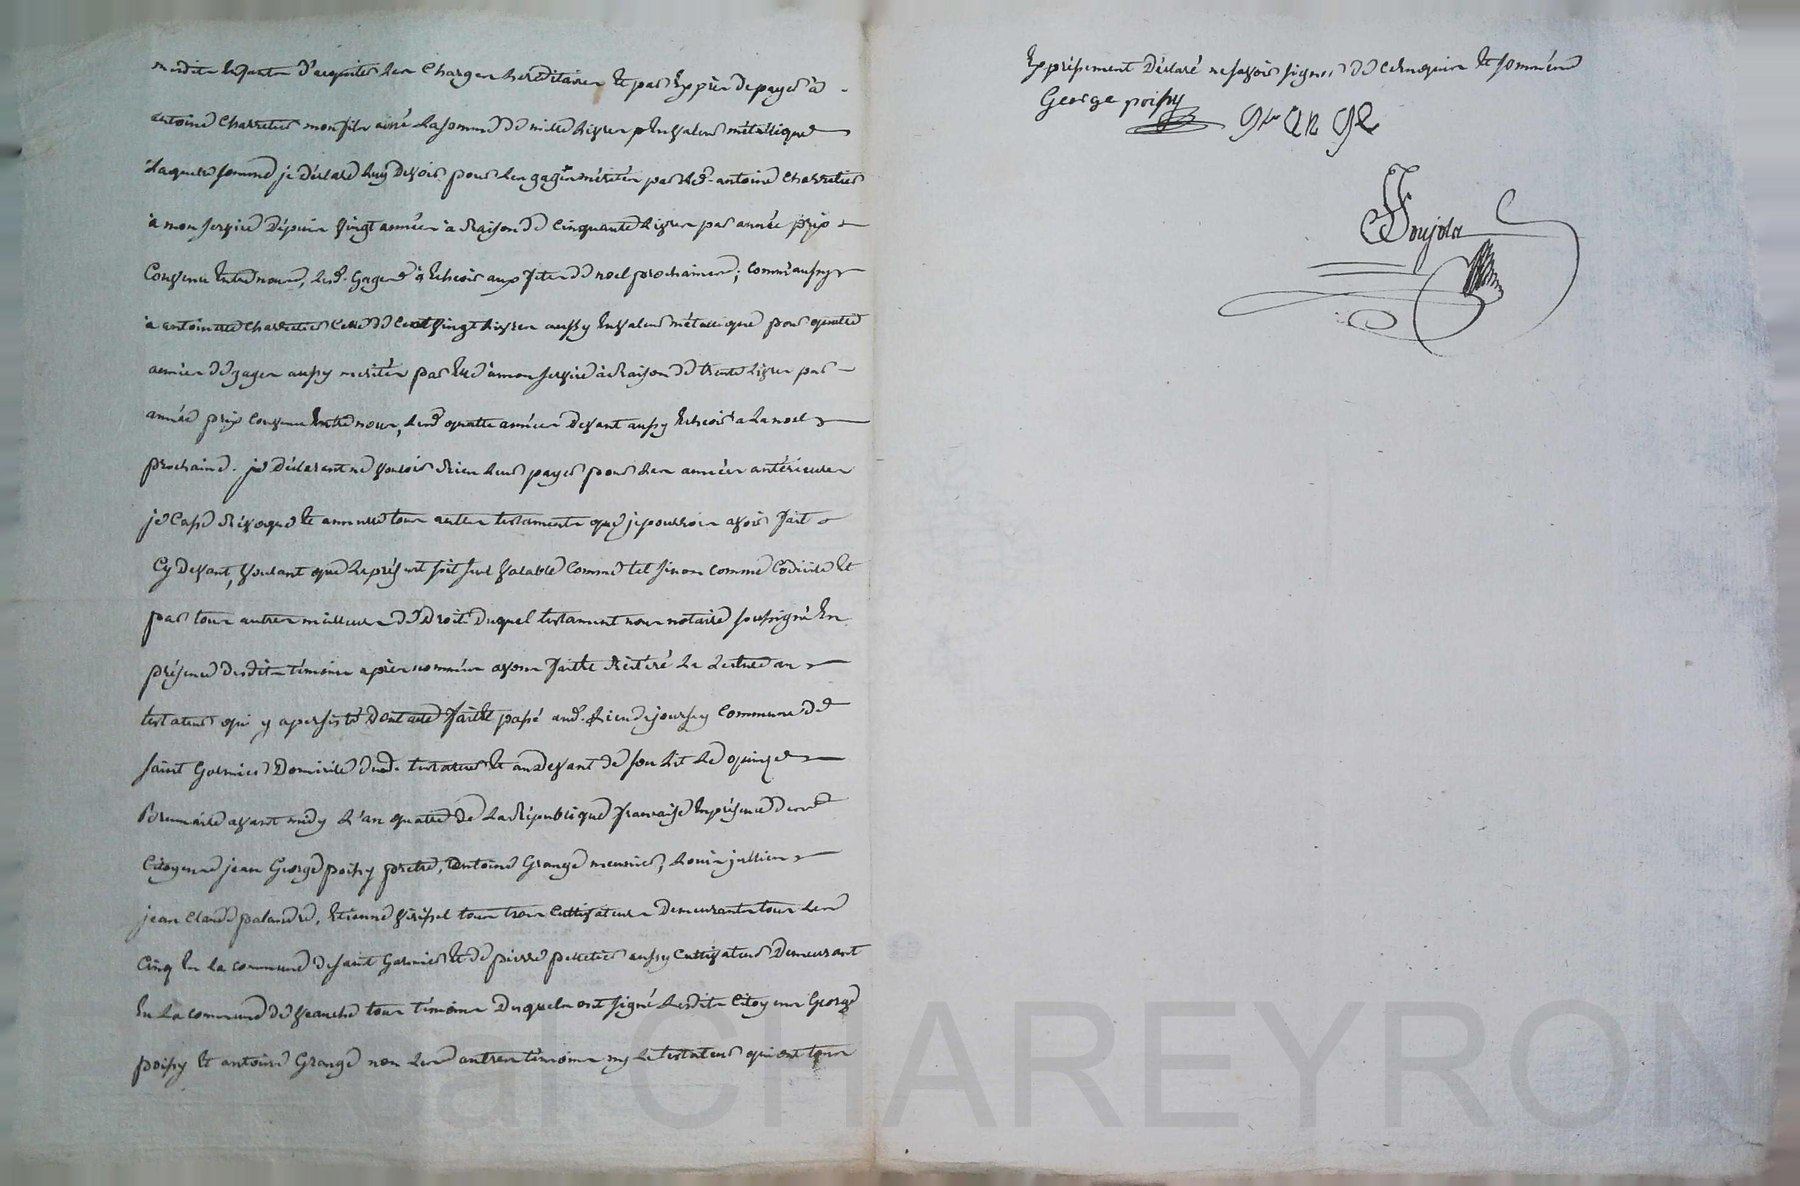 mesdits enfants d'acquiter les charges hereditaires et par exprès de payer à
antoine Charretier mon fils ainé la somme de mille livres en valeur métallique
laquelle somme je déclare luy devoir pour les gages mérités par led. antoine Charretier
à mon service depuis vingt années à raison de cinquante livres par année prix
convenu entre nous, lesd. gages à écheoir aux fetes de noel prochaines; comm'aussy
à antoinette Charretier celle de cent vingt livres aussy en valeur métallique pour quatre
années de gages aussy merités par elle à mon service à raison de trente livres par
année prix convenu entre nous, lesd quatre années devant aussy écheoir a la noel
prochaine. je déclarant ne vouloir rien leur payer pour les années antérieures
je casse révoque et annulle tous autres testaments que je pourrois avoir fait
cy devant, voulant que le présent soit seul valable comme tel sinon comme codicile et
par tous autres meilleurs de droit. duquel testament nous notaire soussigné en
présence desdits témoins après nommés avons faitte réitéré la lecture au
testateur qui y a persisté dont acte fait et passé aud. lieu de joursey commune de
saint Galmier domicile dud. testateur et au devant de son lit le quinze
Brumaire avant midy l'an quatre de la république francaise en présence des
citoyens jean George poissy pretre, antoine Grange meunier, Louis jullien
jean claude palandre, etienne virissel tous trois cultivateurs demeurants tous les
cinq en la commune de saint Galmier et de pierre pelletier aussy cultivateur demeurant
en la commune de veauche tous témoins desquels ont signé lesdits citoyens George
poissy et antoine Grange non les autres témoins ny le testateur qui ont tous
expressement déclaré ne savoir signer de ce enquis et sommés
George poissy